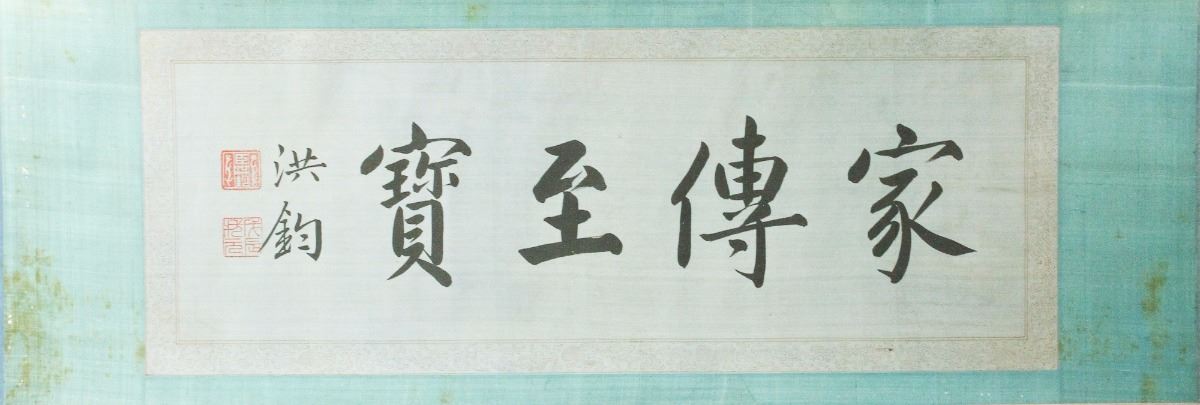 家傳至寶
洪鈞